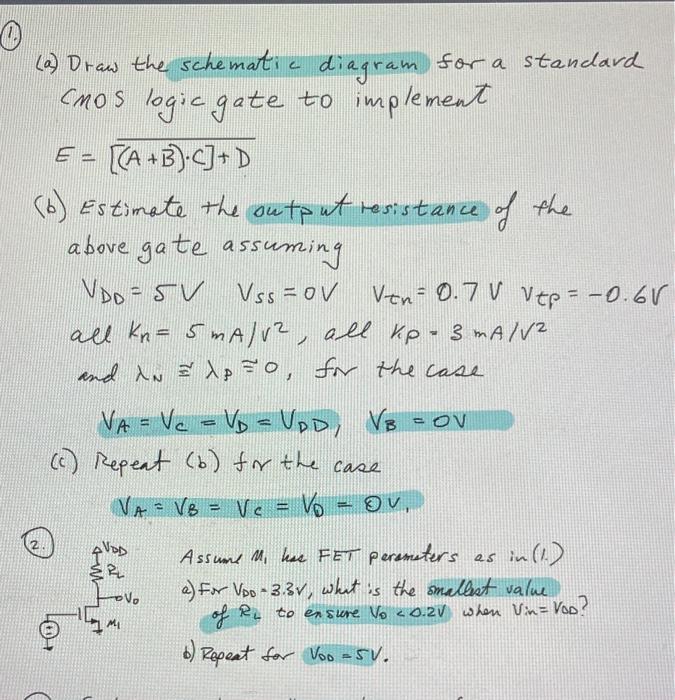 1.
(a) Draw the schematic diagram for a standard
CMOS logic gate to implement
E = \overline{[(A+B)·C]+D}
(b) Estimate the output resistance of the
above gate assuming
VDD = 5V VSS = 0V Vtn = 0.7 V Vtp = -0.6V
all Kn = 5 mA/V², all Kp = 3 mA/V²
and λN ≅ λP ≅ 0, for the case
VA = VC = VD = VDD, VB = 0V
(c) Repeat (b) for the case
VA = VB = VC = VD = 0V.
2.
VDD
RL
Vo
M1
Assume M1 has FET parameters as in (1.)
a) For VDD = 3.3V, what is the smallest value
of RL to ensure Vo < 0.2V when Vin = VDD?
b) Repeat for VDD = 5V.